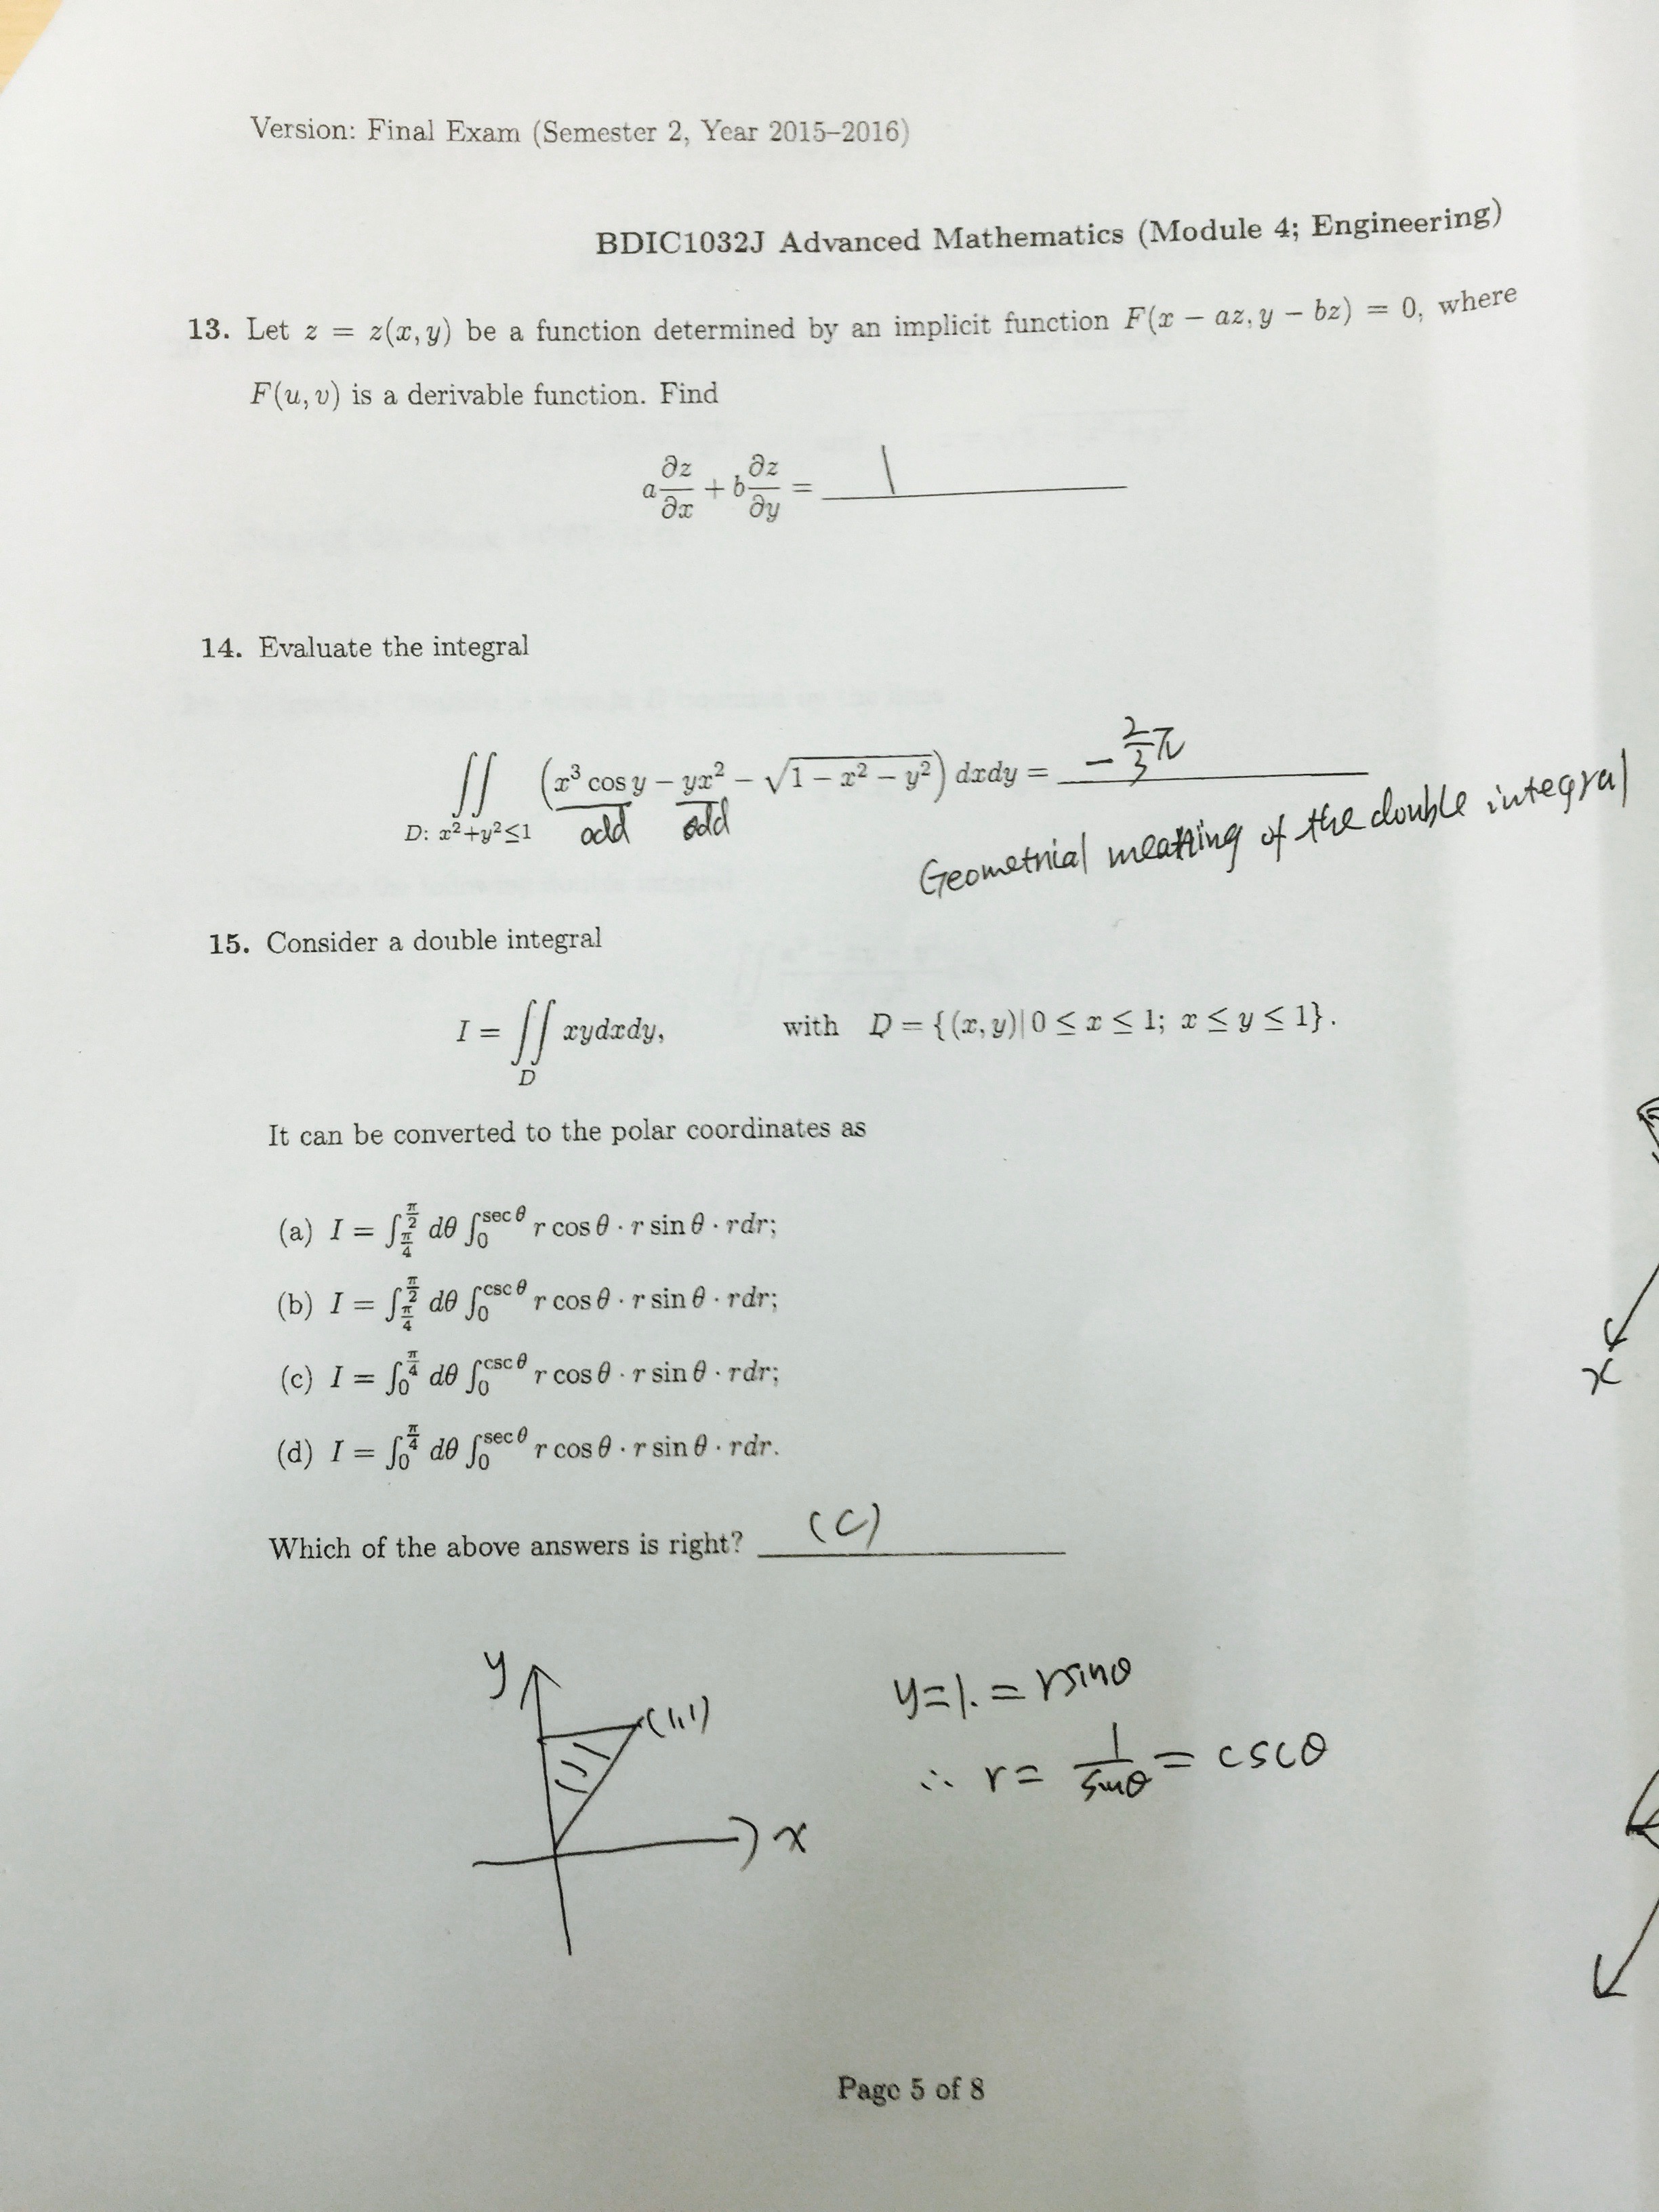 Version: Final Exam (Semester 2, Year 2015–2016)
BDIC1032J Advanced Mathematics (Module 4; Engineering)
13. Let z = z(x, y) be a function determined by an implicit function F(x − az, y − bz) = 0, where
F(u, v) is a derivable function. Find
a ∂z/∂x + b ∂z/∂y = 1
14. Evaluate the integral
∬ (x³ cos y − yx² − √(1 − x² − y²)) dxdy = −2/3 π
D: x²+y²≤1 odd odd
Geometrial meaning of the double integral
15. Consider a double integral
I = ∬ xydxdy, with D = {(x, y)| 0 ≤ x ≤ 1; x ≤ y ≤ 1}.
D
It can be converted to the polar coordinates as
(a) I = ∫_{π/4}^{π/2} dθ ∫_0^{sec θ} r cos θ · r sin θ · rdr;
(b) I = ∫_{π/4}^{π/2} dθ ∫_0^{csc θ} r cos θ · r sin θ · rdr;
(c) I = ∫_0^{π/4} dθ ∫_0^{csc θ} r cos θ · r sin θ · rdr;
(d) I = ∫_0^{π/4} dθ ∫_0^{sec θ} r cos θ · r sin θ · rdr.
x
Which of the above answers is right? (C)
y
(1,1)
y=1. = rsinθ
∴ r = 1/sinθ = cscθ
x
Page 5 of 8